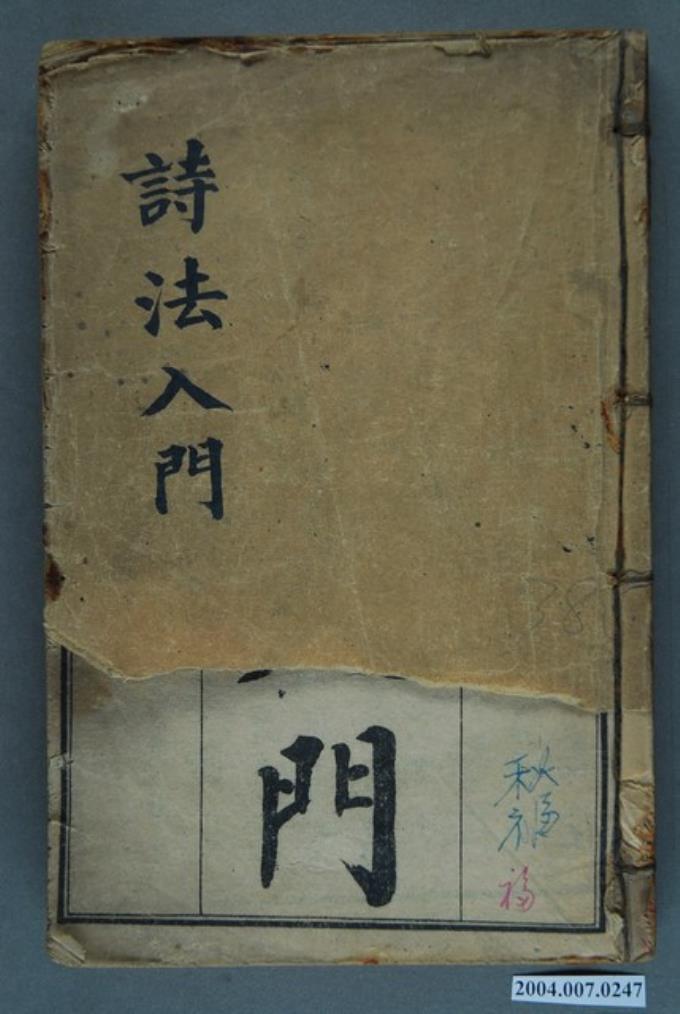 詩法入門
門
秋福
福
38
2004.007.0247